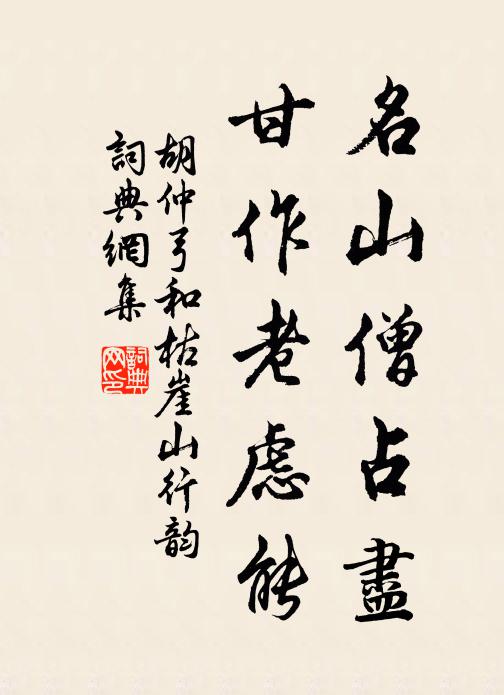 名山僧占盡
甘作老慮能
胡仲弓和枯崖山行韵
詞典網集
詞典
网印